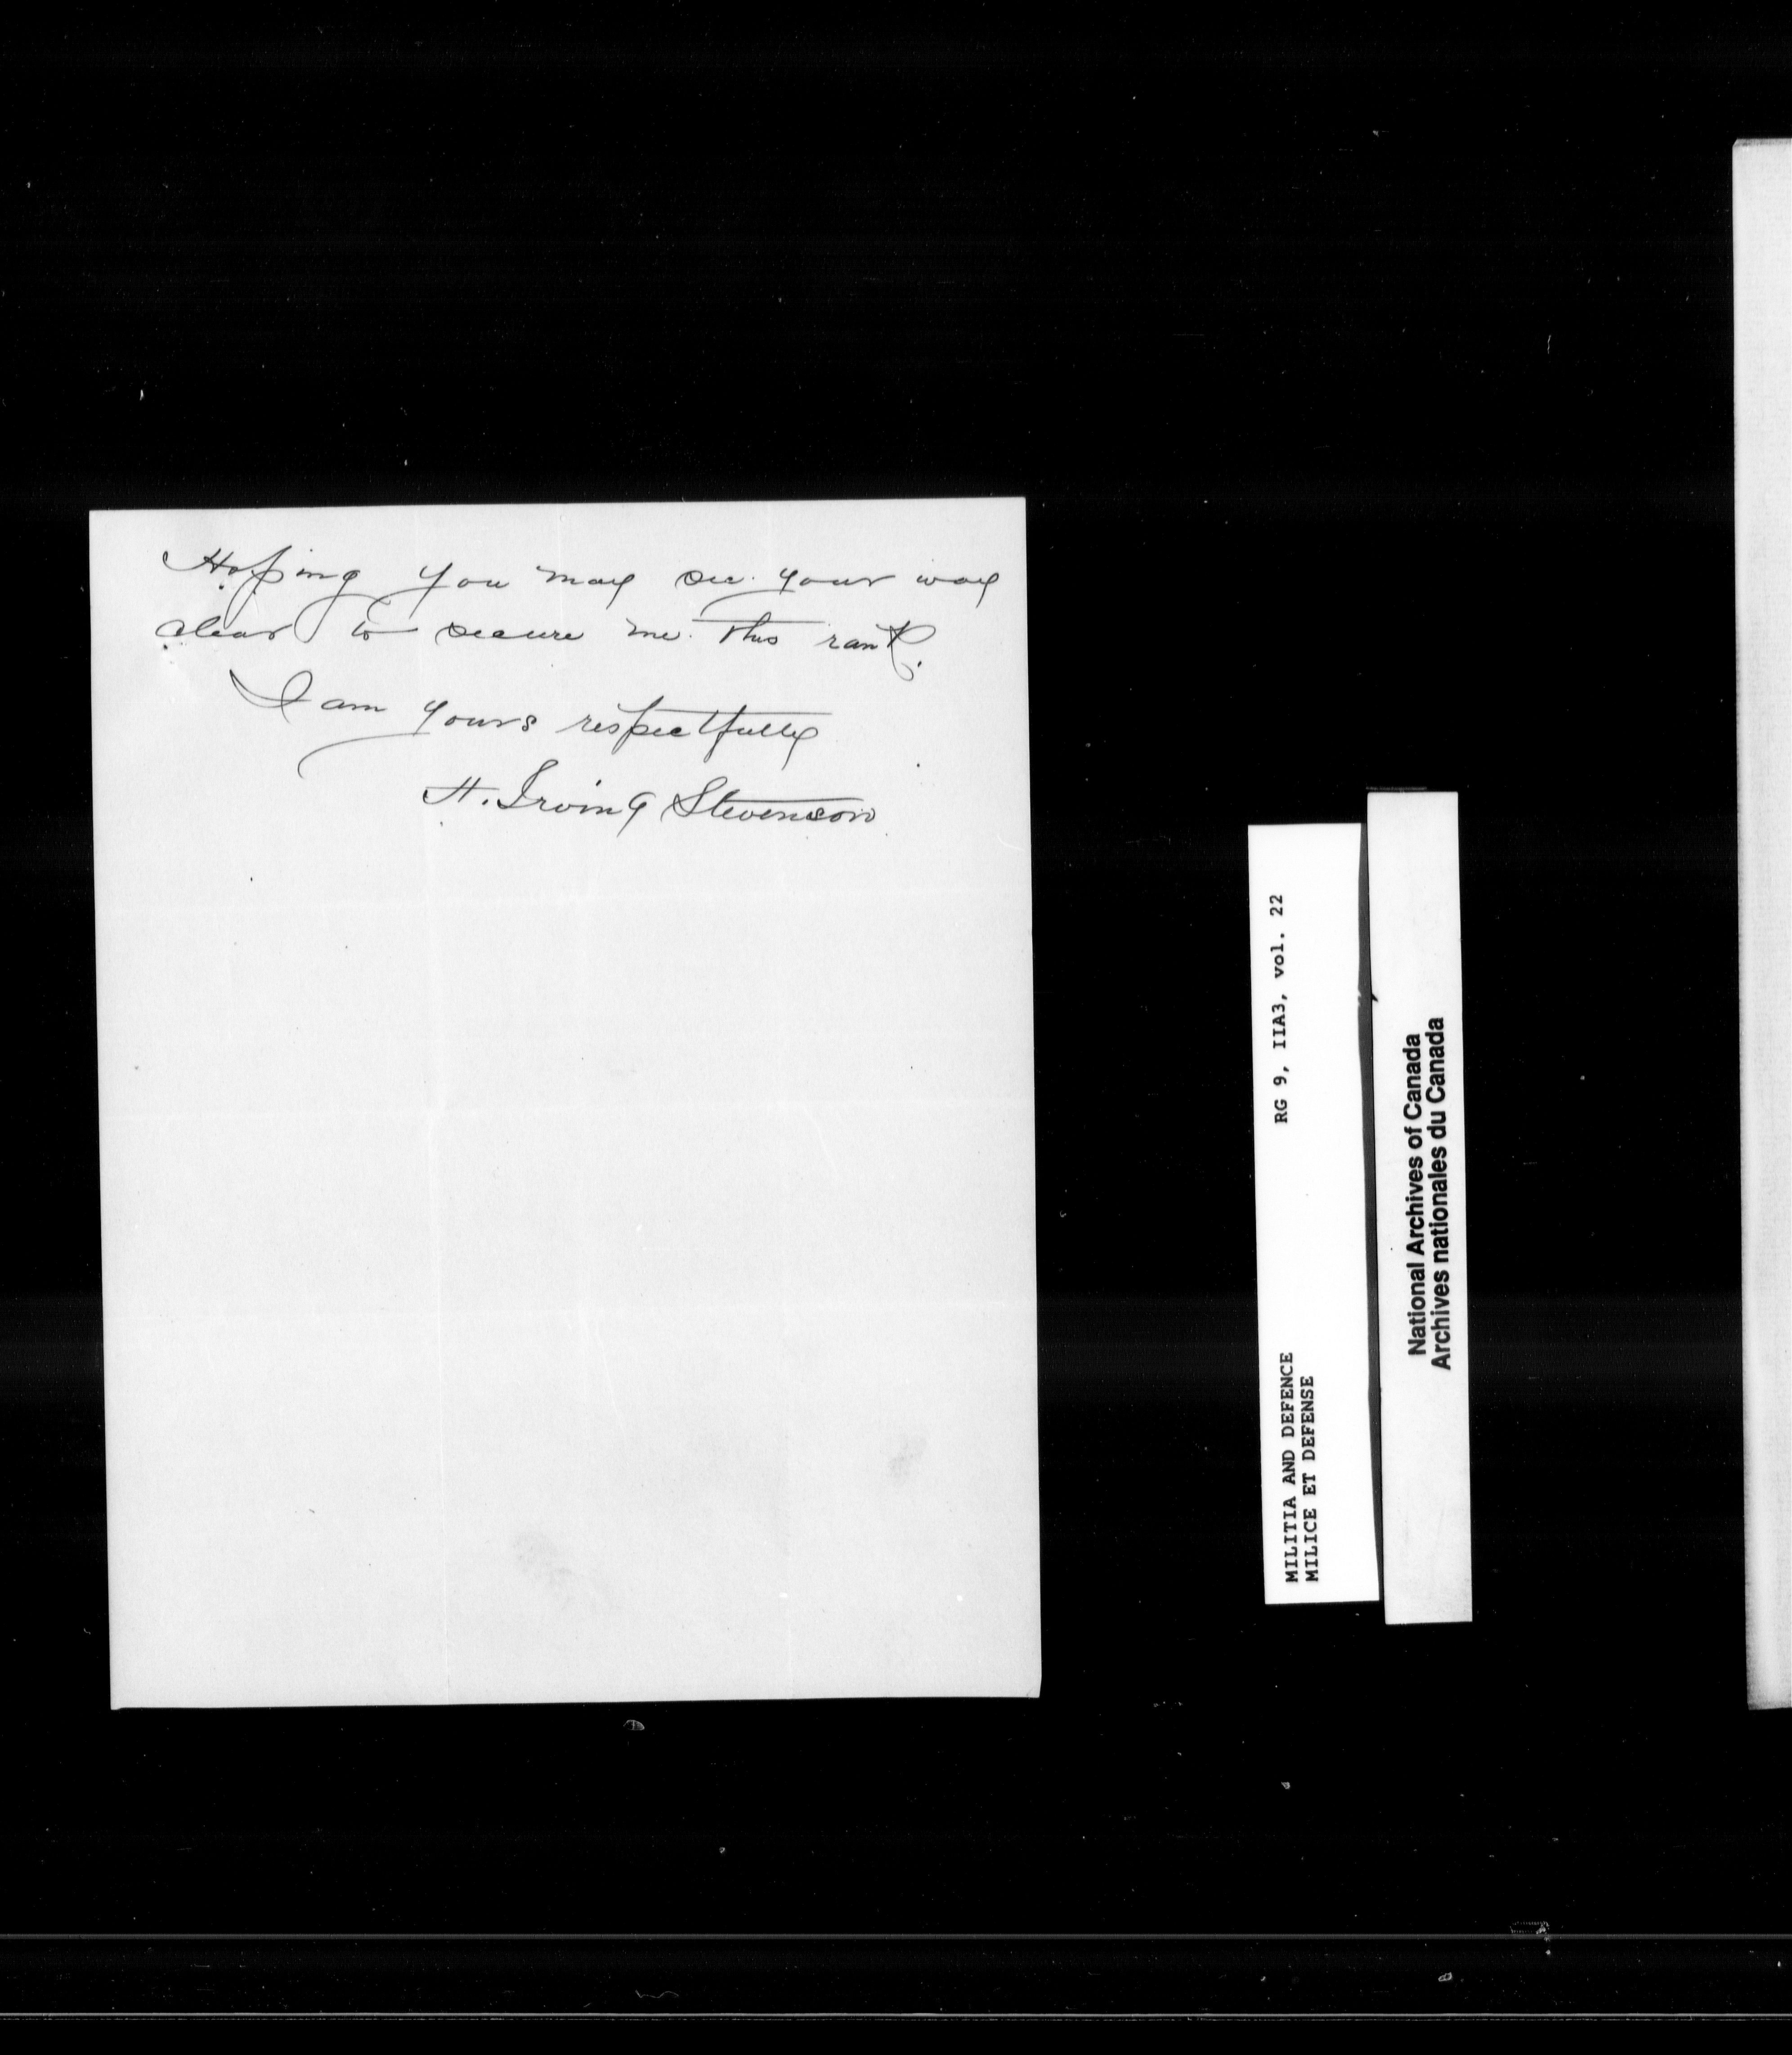 Hoping you may see your way
clear to secure me this rank.
I am yours respectfully
H. Irving Stevenson
RG 9, IIA3, vol. 22
MILITIA AND DEFENCE
MILICE ET DEFENSE
National Archives of Canada
Archives nationales du Canada